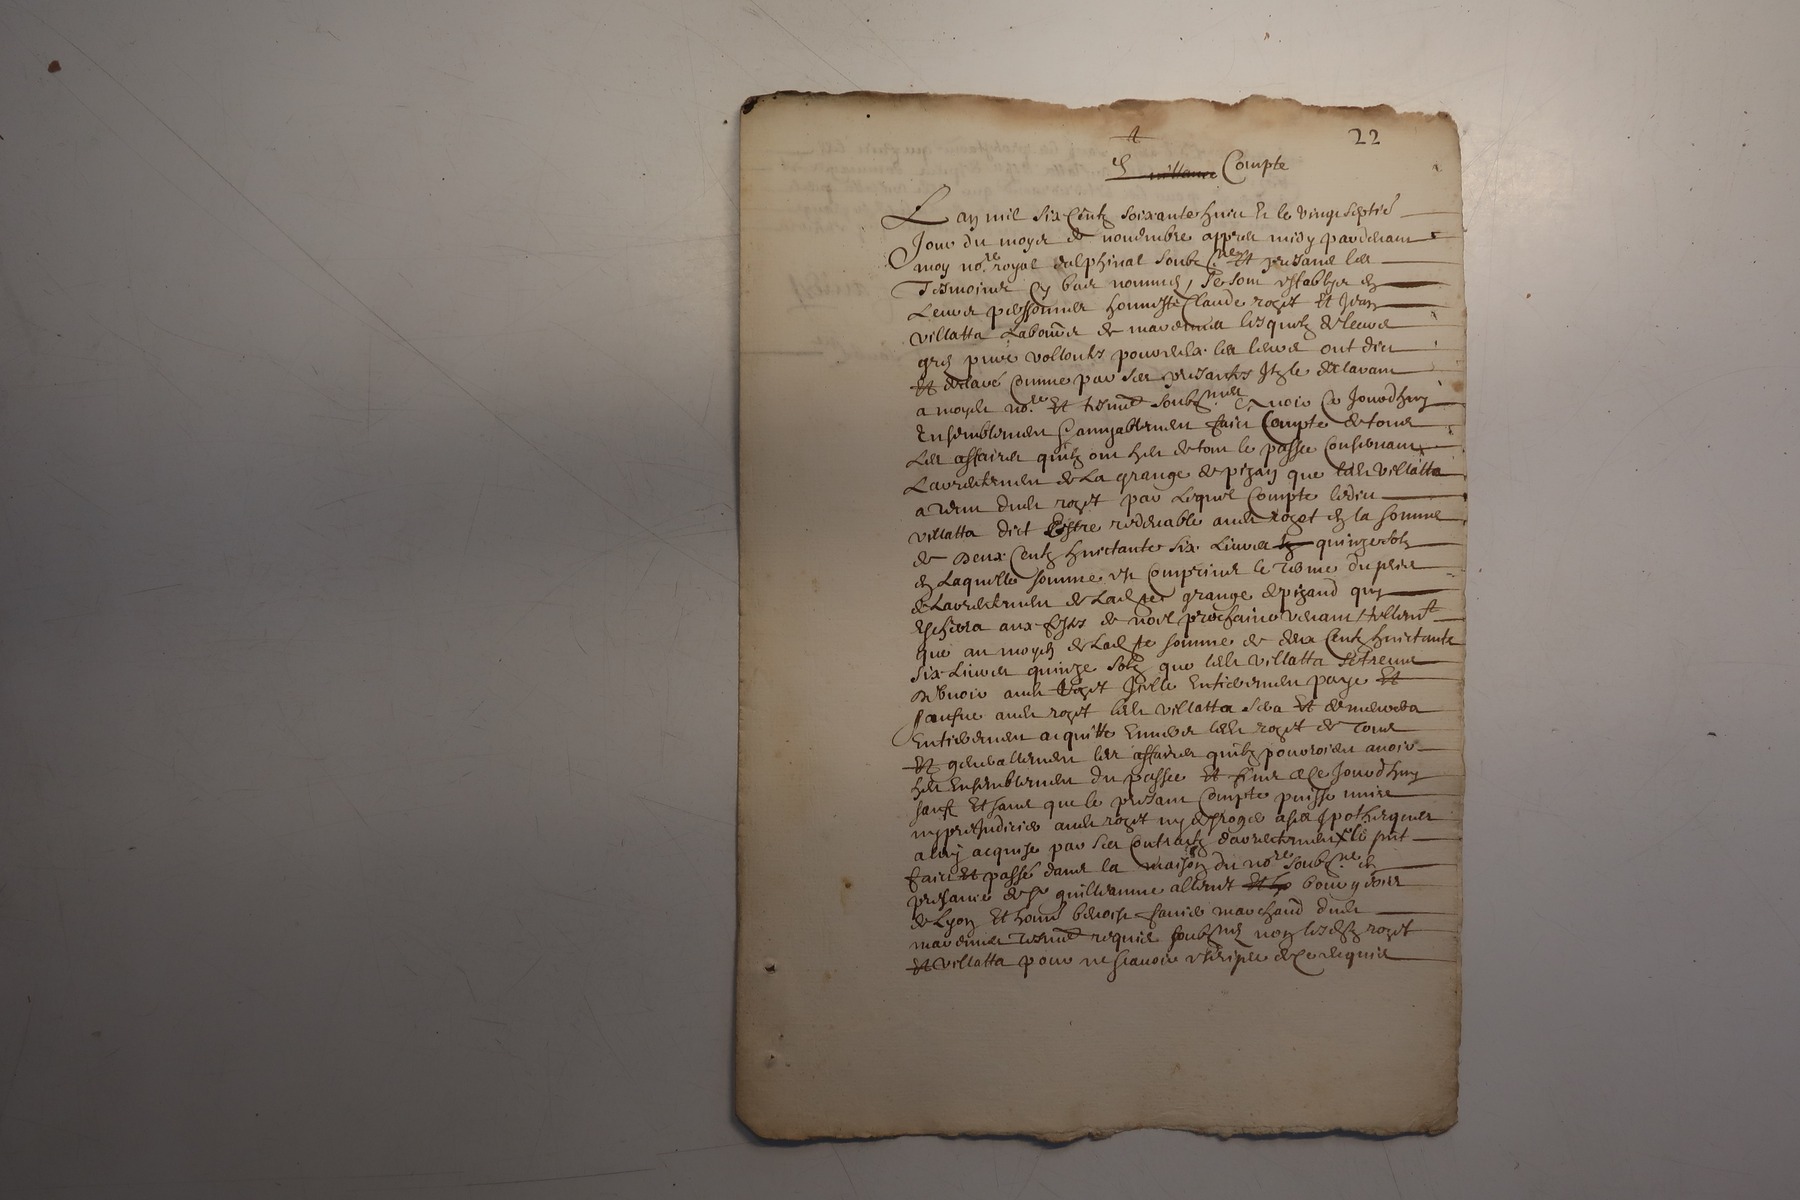 22
Compte
Lan mil six Centz soixante huict & le vingt septie
Jour du moys de novembre appres midy pardevant
moy no.re royal dalphinal soubz.ne Et presans les
Tesmoings Cy bas nommes, Se sont establys en
Leurs personnes honneste Claude roget Et Jean
villatta Laboureur de lesquelz de leurs
gres pures vollontes pour eulx les leurs ont dict
Et declare Comme par ses presantes Ilz le declarent
a moydt no.re Et tesmoins soubz.nes Avoir Ce Jourdhuy
Ensemblement & amyablement faict Compte de toutes
Les affaires quilz ont heu de tout le passe Consernant
Larrentement de La grange de pizay que ledt villatta
a tenu dudt roget par Lequel Compte ledict
villatta dict Estre redevable audt roget en la somme
de Deux Centz huictante six Livres quinze solz
en Laquelle somme est Comprins le terme du prix
de Larrentement de Ladte grange de pizand quy
Eschera aux festes de noel prochaine venant tellemt
que au moyen de Ladte somme de deux Centz huictante
six Livres quinze solz que ledt villatta se treuve
Debvoir audt roget Icelle Entierement paye Et
audt roget ledt villatta sera Et demeurera
Entierement acquitte Envers ledt roget de Toutes
Et generallement les affaires quilz pourroient avoir
heu Ensemblement du passe Et fins a Ce Jourdhuy
sauf Et sans que le presant Compte puisse nuire
ny prejudicier audt roget ny desroger a ses ypotheques
a luy acquise par ses Contractz darrentement le fut
faict Et passe dans la maison du no.re soubz.ne en
presance de sr guilleaume allerut bourgeois
de Lyon Et honn benoist marchand dudt
Tesmoins requis soubz.nes non lesdtz roget
Et villatta pour ne scavoir escripre de Ce requis